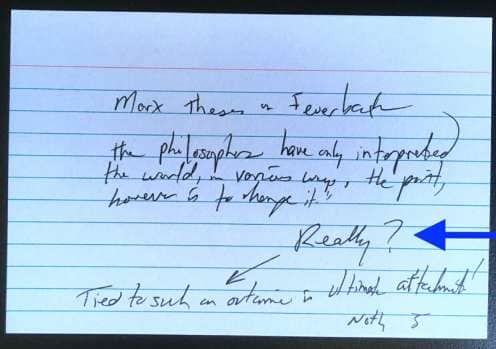 Marx Theses on Feuerbach
the philosophers have only interpreted
the world, in various ways, the point,
however is to change it"
Really?
Tied to such an outcome is ultimate attachment!
5